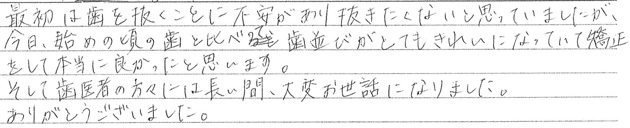 最初は歯を抜くことに不安があり抜きたくないと思っていましたが、
今日、始めの頃の歯と比べ歯並びがとてもきれいになっていて矯正
をして本当に良かったと思います。
そして歯医者の方々には長い間、大変お世話になりました。
ありがとうございました。